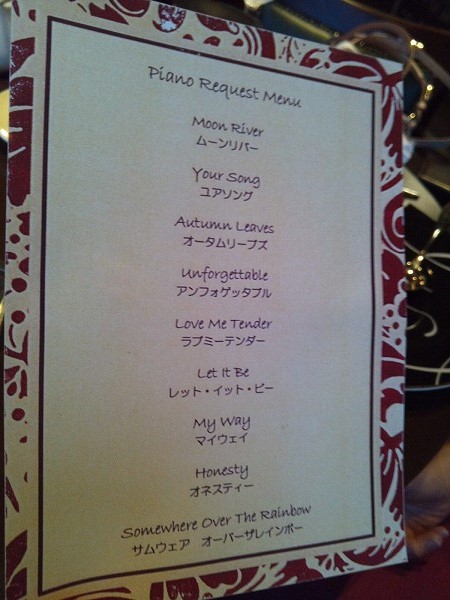 Piano Request Menu
Moon River
ムーンリバー
Your Song
ユアソング
Autumn Leaves
オータムリーブズ
Unforgettable
アンフォゲッタブル
Love Me Tender
ラブミーテンダー
Let It Be
レット・イット・ビー
My Way
マイウェイ
Honesty
オネスティー
Somewhere Over The Rainbow
サムウェア オーバーザレインボー